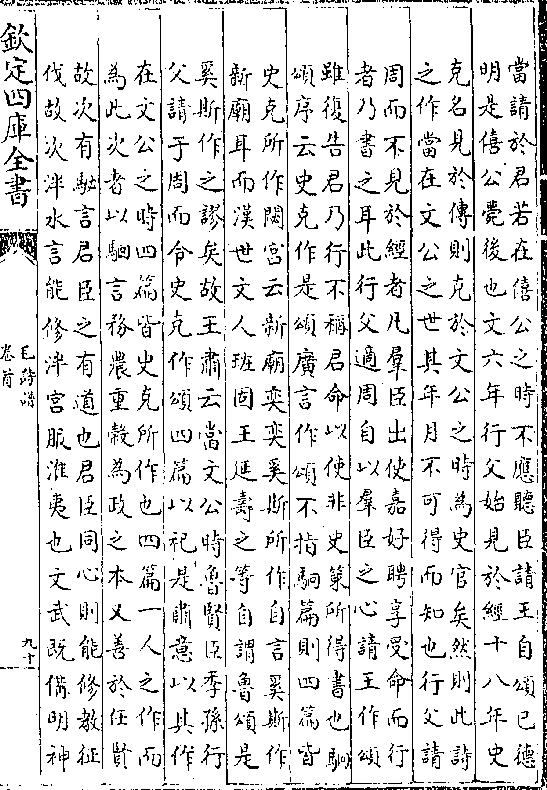 當請於君若在僖公之時不應聽臣請王自頌己德
明是僖公薨後也文六年行父始見於經十八年史
克名見於傳則克於文公之時為史官矣然則此詩
之作當在文公之世其年月不可得而知也行父請
周而不見於經者凡羣臣出使嘉好聘享受命而行
者乃書之耳此行父適周自以羣臣之心請王作頌
雖復告君乃行不稱君命以使非史策所得書也駉
頌序云史克作是頌廣言作頌不指駉篇則四篇皆
史克所作閟宮云新廟奕奕奚斯所作自言奚斯作
新廟耳而漢世文人班固王延壽之等自謂魯頌是
奚斯作之謬矣故王肅云當文公時魯賢臣季孫行
父請于周而令史克作頌四篇以祀是肅意以其作
在文公之時四篇皆史克所作也四篇一人之作而
為此次者以駉言務農重穀為政之本又善於任賢
故次有駜言君臣之有道也君臣同心則能修教征
伐故次泮水言能修泮宮服淮夷也文武既備明神
欽定四庫全書
毛詩譜
卷首
九十